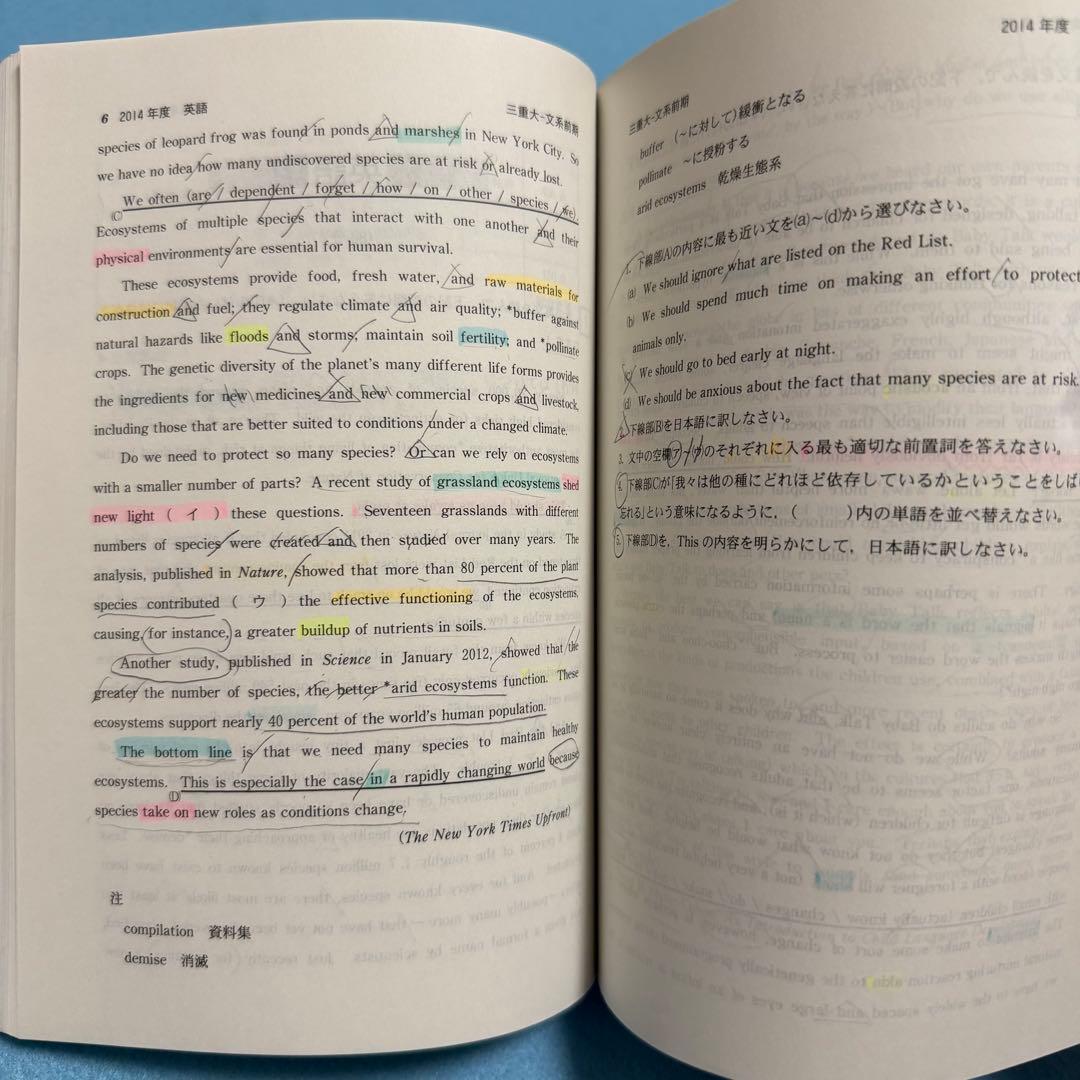 6 2014年度 英語 三重大-文系前期
species of leopard frog was found in ponds and marshes in New York City. So
we have no idea how many undiscovered species are at risk or already lost.
We often (are / dependent / forget / how / on / other / species / we).
(C)
Ecosystems of multiple species that interact with one another and their
physical environments are essential for human survival.
These ecosystems provide food, fresh water, and raw materials for
construction and fuel; they regulate climate and air quality; *buffer against
natural hazards like floods and storms; maintain soil fertility; and *pollinate
crops. The genetic diversity of the planet's many different life forms provides
the ingredients for new medicines and new commercial crops and livestock,
including those that are better suited to conditions under a changed climate.
Do we need to protect so many species? Or can we rely on ecosystems
with a smaller number of parts? A recent study of grassland ecosystems shed
new light ( イ ) these questions. Seventeen grasslands with different
numbers of species were created and then studied over many years. The
analysis, published in Nature, showed that more than 80 percent of the plant
species contributed ( ウ ) the effective functioning of the ecosystems,
causing, for instance, a greater buildup of nutrients in soils.
Another study, published in Science in January 2012, showed that the
greater the number of species, the better *arid ecosystems function. These
ecosystems support nearly 40 percent of the world's human population.
The bottom line is that we need many species to maintain healthy
ecosystems. This is especially the case in a rapidly changing world because
(D)
species take on new roles as conditions change.
(The New York Times Upfront)
注
compilation 資料集
demise 消滅
2014年度
三重大-文系前期
buffer (〜に対して)緩衝となる
pollinate 〜に授粉する
arid ecosystems 乾燥生態系
1. 下線部(A)の内容に最も近い文を(a)〜(d)から選びなさい。
(a) We should ignore what are listed on the Red List.
(b) We should spend much time on making an effort to protect
animals only.
(c) We should go to bed early at night.
(d) We should be anxious about the fact that many species are at risk.
2. 下線部(B)を日本語に訳しなさい。
3. 文中の空欄ア〜ウのそれぞれに入る最も適切な前置詞を答えなさい。
4. 下線部(C)が「我々は他の種にどれほど依存しているかということをしば
忘れる」という意味になるように，( )内の単語を並べ替えなさい。
5. 下線部(D)を，Thisの内容を明らかにして，日本語に訳しなさい。